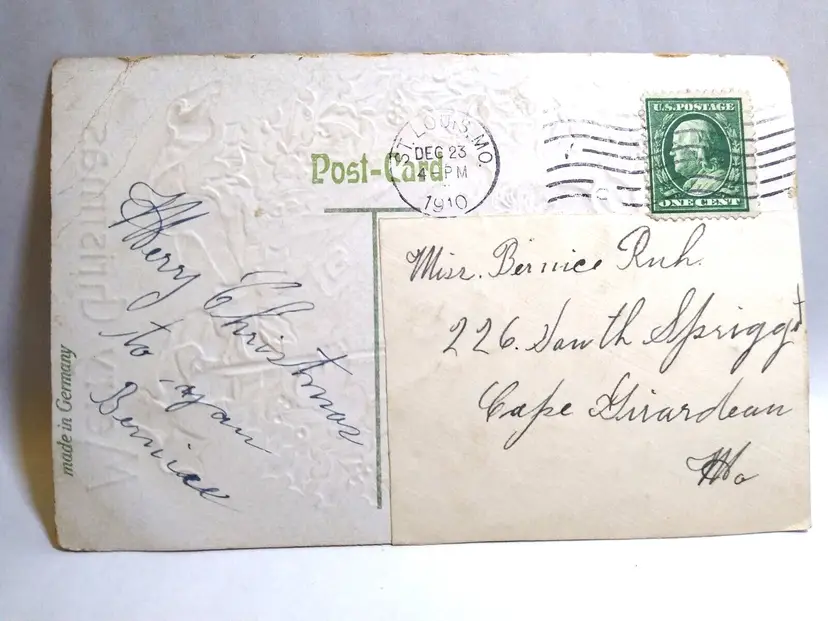 Post-Card
ST. LOUIS, MO.
DEC 23
4 PM
1910
U.S. POSTAGE
ONE CENT
Merry Christmas
to you
Bernice
made in Germany
Miss. Bernice Ruh.
226. South Sprigg st
Cape Girardeau
Mo